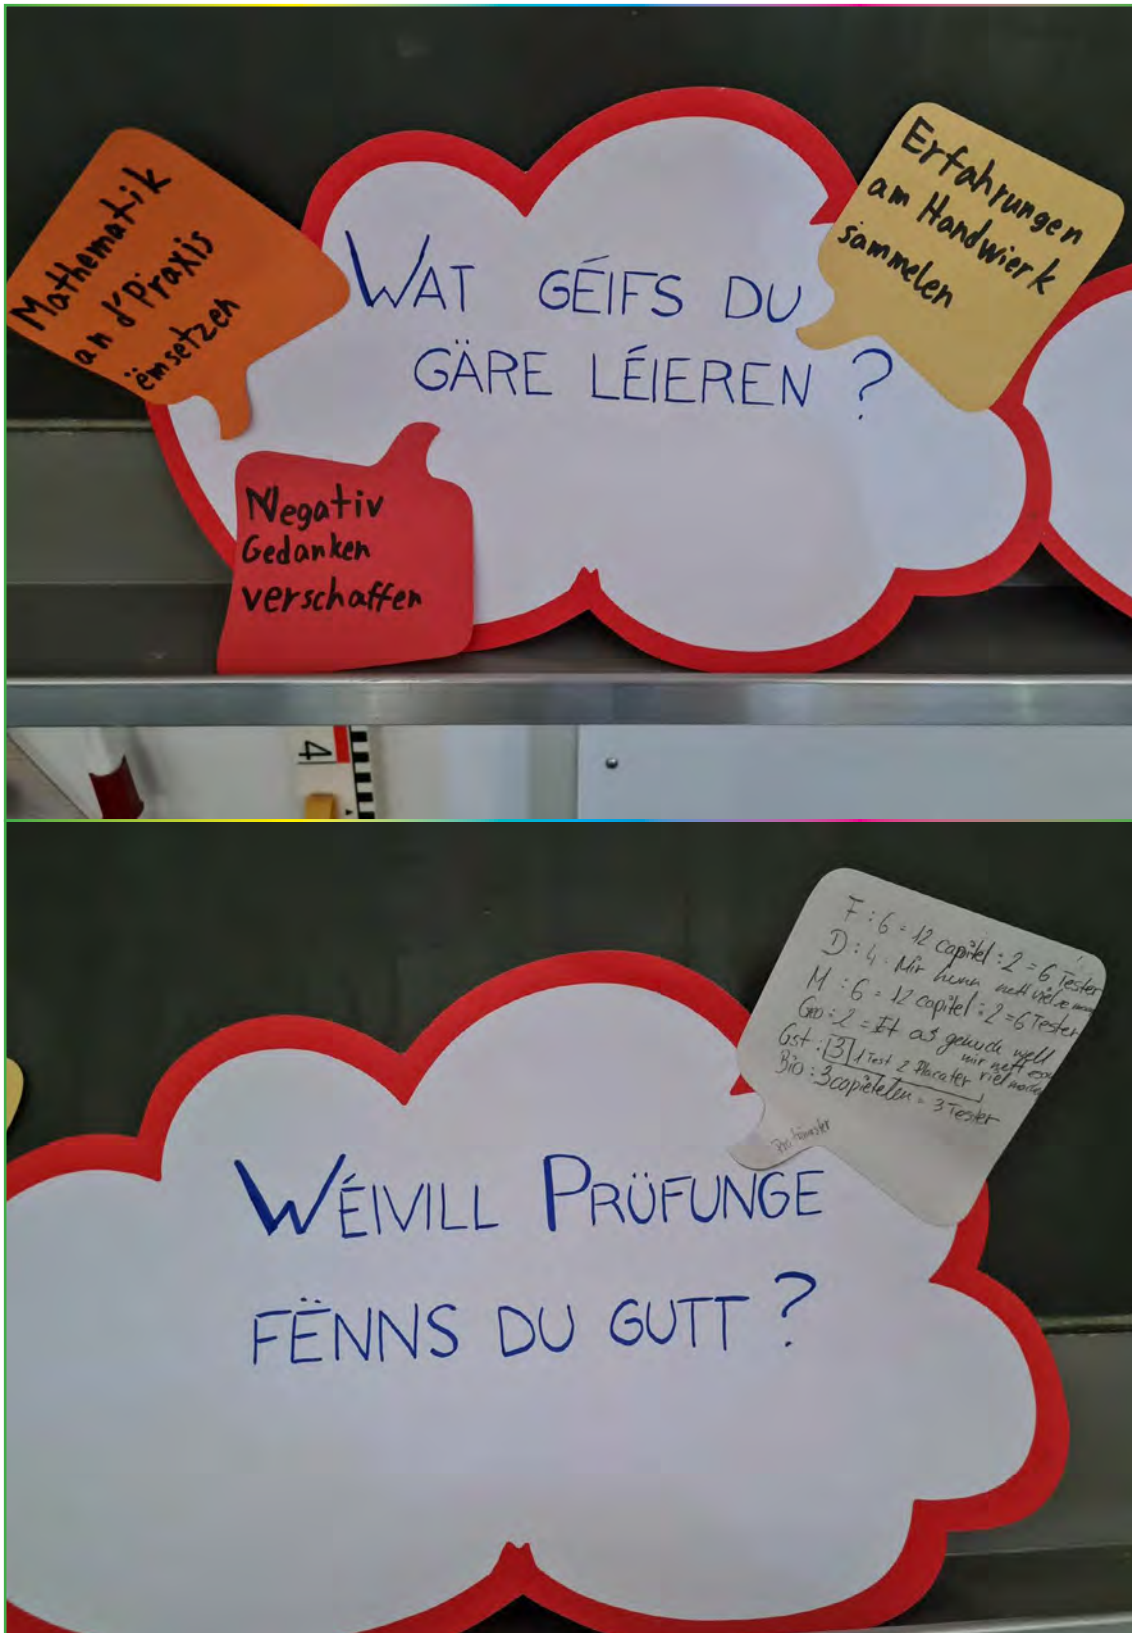 Mathematik
an d'Praxis
ëmsetzen
WAT GÉIFS DU
GÄRE LÉIEREN ?
Erfahrungen
am Handwierk
sammelen
Negativ
Gedanken
verschaffen
4
F : 6 = 12 capitel : 2 = 6 Tester
D : 4 Mir hunn nett
M : 6 = 12 capitel : 2 = 6 Tester
Geo : 2 = as genuch well
mir nett
Gst : 3 1 Test 2 Placater
Bio : 3 capietelen = 3 Tester
WÉIVILL PRÜFUNGE
FËNNS DU GUTT ?